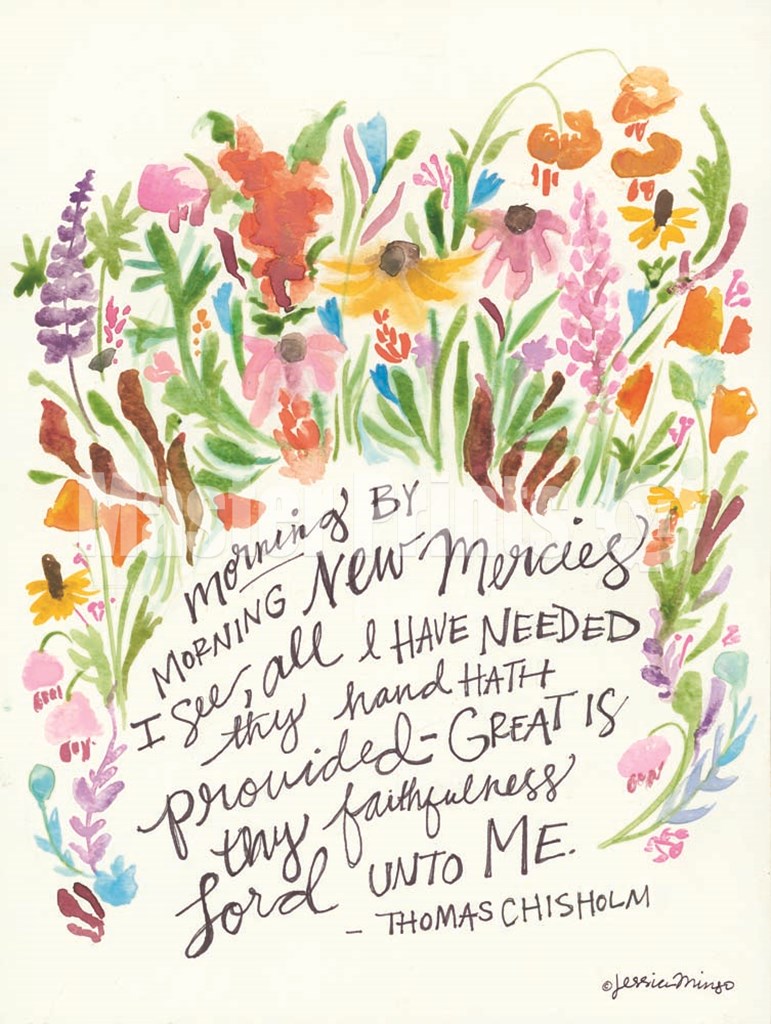 morning BY
MORNING New Mercies
I See, all I HAVE NEEDED
thy hand HATH
provided- GREAT IS
thy faithfulness
Lord UNTO ME.
- THOMAS CHISHOLM
©Jessica Mingo